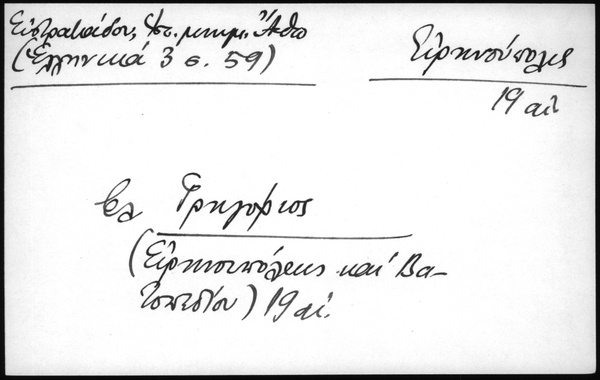 Εὐστρατιάδου, Ἱστ. μνημ. Ἄθω
(Ἑλληνικά 3 σ. 59)
Εἰρηνούπολις
19 αἰ
βλ Γρηγόριος
(Εἰρηνουπόλεως καί Βα-
τοπεδίου) 19 αἰ.